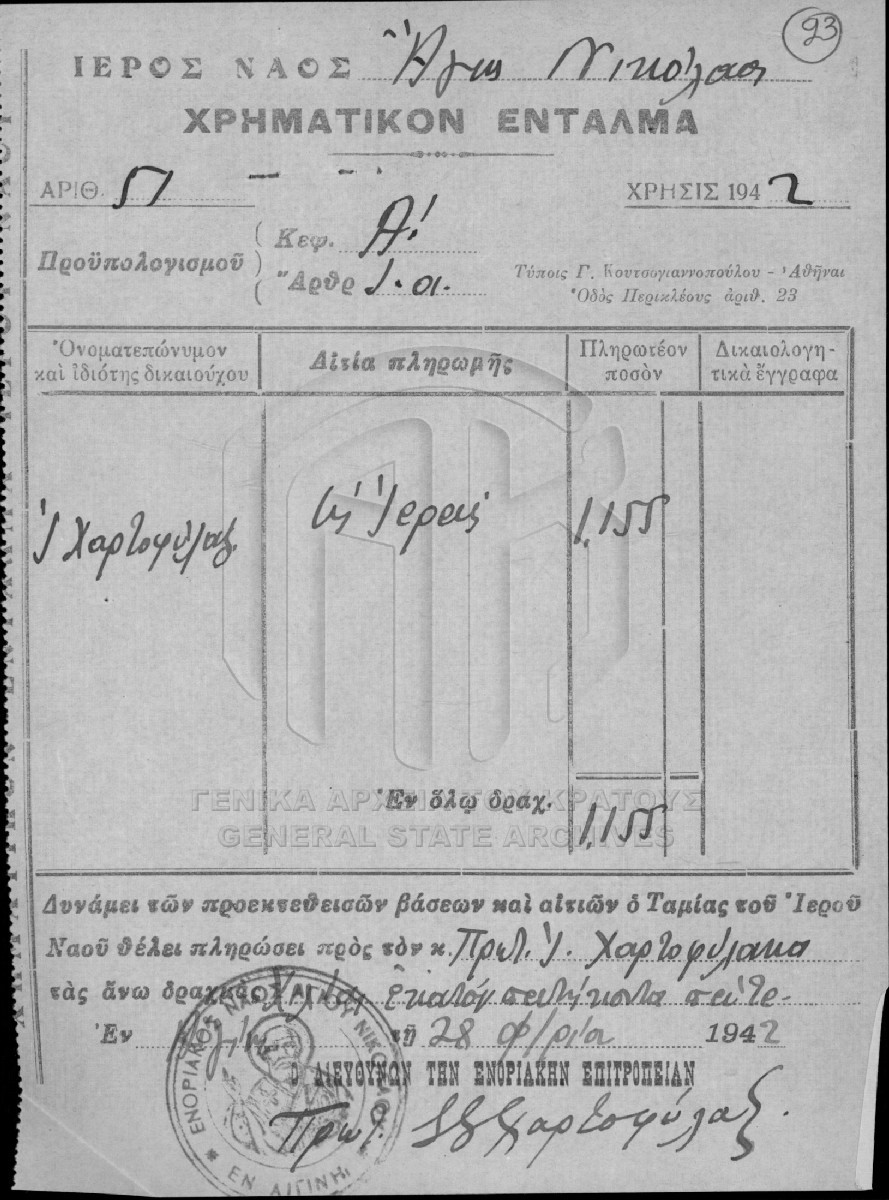 93
ΙΕΡΟΣ ΝΑΟΣ Ἅγιος Νικόλαος
ΧΡΗΜΑΤΙΚΟΝ ΕΝΤΑΛΜΑ
ΑΡΙΘ. 51
ΧΡΗΣΙΣ 1942
Προϋπολογισμοῦ
Κεφ. Α!
Ἄρθρ 1.α.
Τύποις Γ. Κουτσογιαννοπούλου - Ἀθῆναι
Ὁδὸς Περικλέους ἀριθ. 23
Ὀνοματεπώνυμον
καὶ ἰδιότης δικαιούχου
Αἰτία πληρωμῆς
Πληρωτέον
ποσὸν
Δικαιολογη-
τικὰ ἔγγραφα
Ἰ Χαρτοφύλαξ.
ὡς Ἱερεὺς
1,155
Ἐν ὅλῳ δραχ.
1,155
ΓΕΝΙΚΑ ΑΡΧΕΙΑ ΤΟΥ ΚΡΑΤΟΥΣ
GENERAL STATE ARCHIVES
Δυνάμει τῶν προεκτεθεισῶν βάσεων καὶ αἰτιῶν ὁ Ταμίας τοῦ Ἱεροῦ
Ναοῦ θέλει πληρώσει πρὸς τὸν κ. Πρωτ. Ἰ. Χαρτοφύλακα
τὰς ἄνω δραχμὰς ἑκατὸν πεντήκοντα πέντε
Ἐν τῇ 28 Φ/ρίου 1942
Ὁ ΔΙΕΥΘΥΝΩΝ ΤΗΝ ΕΝΟΡΙΑΚΗΝ ΕΠΙΤΡΟΠΕΙΑΝ
Πρωτ. Χαρτοφύλαξ.
ΕΝΟΡΙΑΚΟΣ ΝΑΟΣ ΑΓΙΟΥ ΝΙΚΟΛΑΟΥ
ΕΝ ΑΙΓΙΝΗ